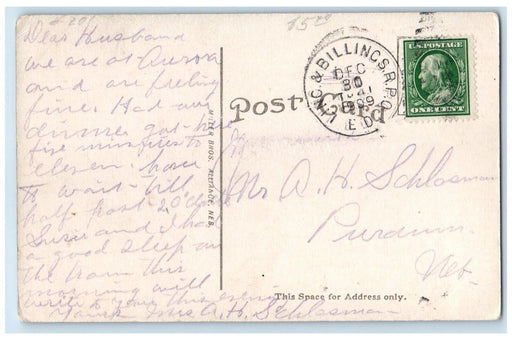 Dear Husband
we are at Aurora
and are feeling
fine. Had our
dinner got here
five minutes to
eleven have
to wait till
half past 2 o'clock
Susie and I had
a good sleep on
the train this
morning will
write to you this evening
Yours Mrs A. H. Schlosman
MILLER BROS. ALLIANCE, NEB.
Post Card
LINC. & BILLINGS R.P.O.
DEC
30
1909
E.D.
U.S. POSTAGE
ONE CENT
Mr A. H. Schlosman
Purdum
Neb.
This Space for Address only.